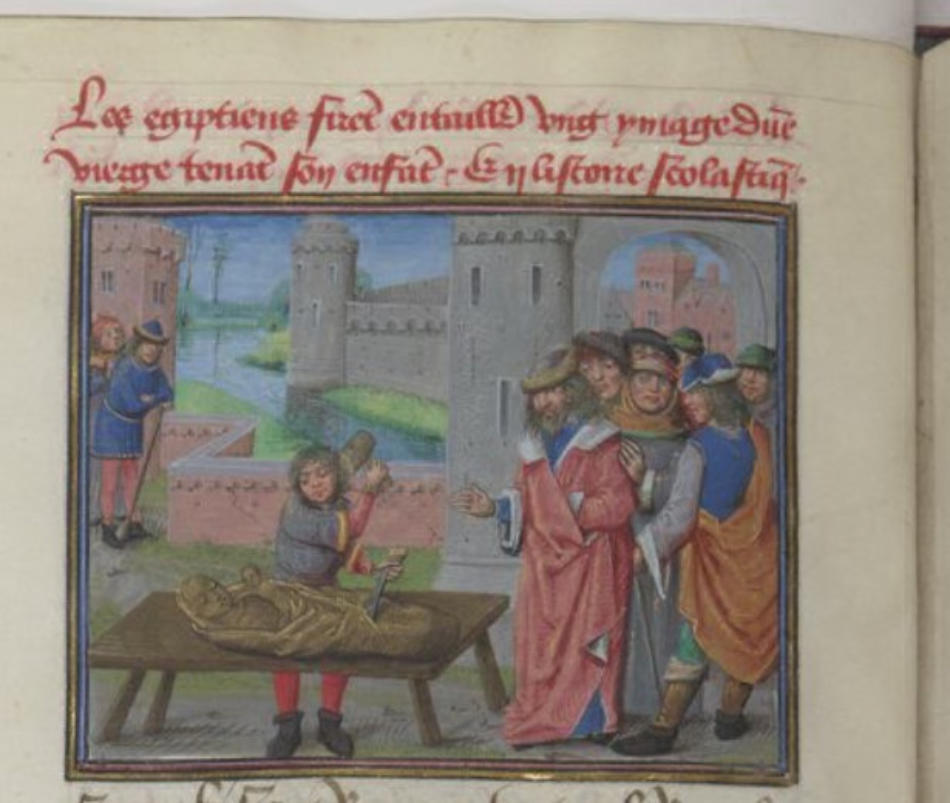 Les egiptiens firēt entaillē vng ymage dūe
vierge tenāt son enfāt. Et y listoire scolastiq̄.